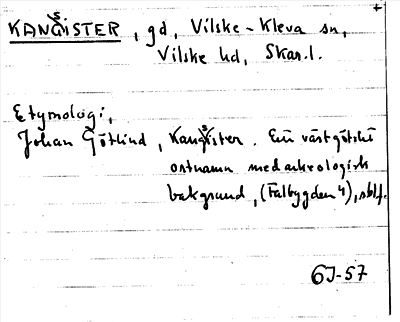 KANGSISTER, gd, Vilske-Kleva sn,
Vilske hd, Skar.l.
Etymologi,
Johan Götlind, Kangsister. Ein västgötskt
ortnamn med arkeologisk
bakgrund, (Falbygden 4), sbl.f.
6J-57